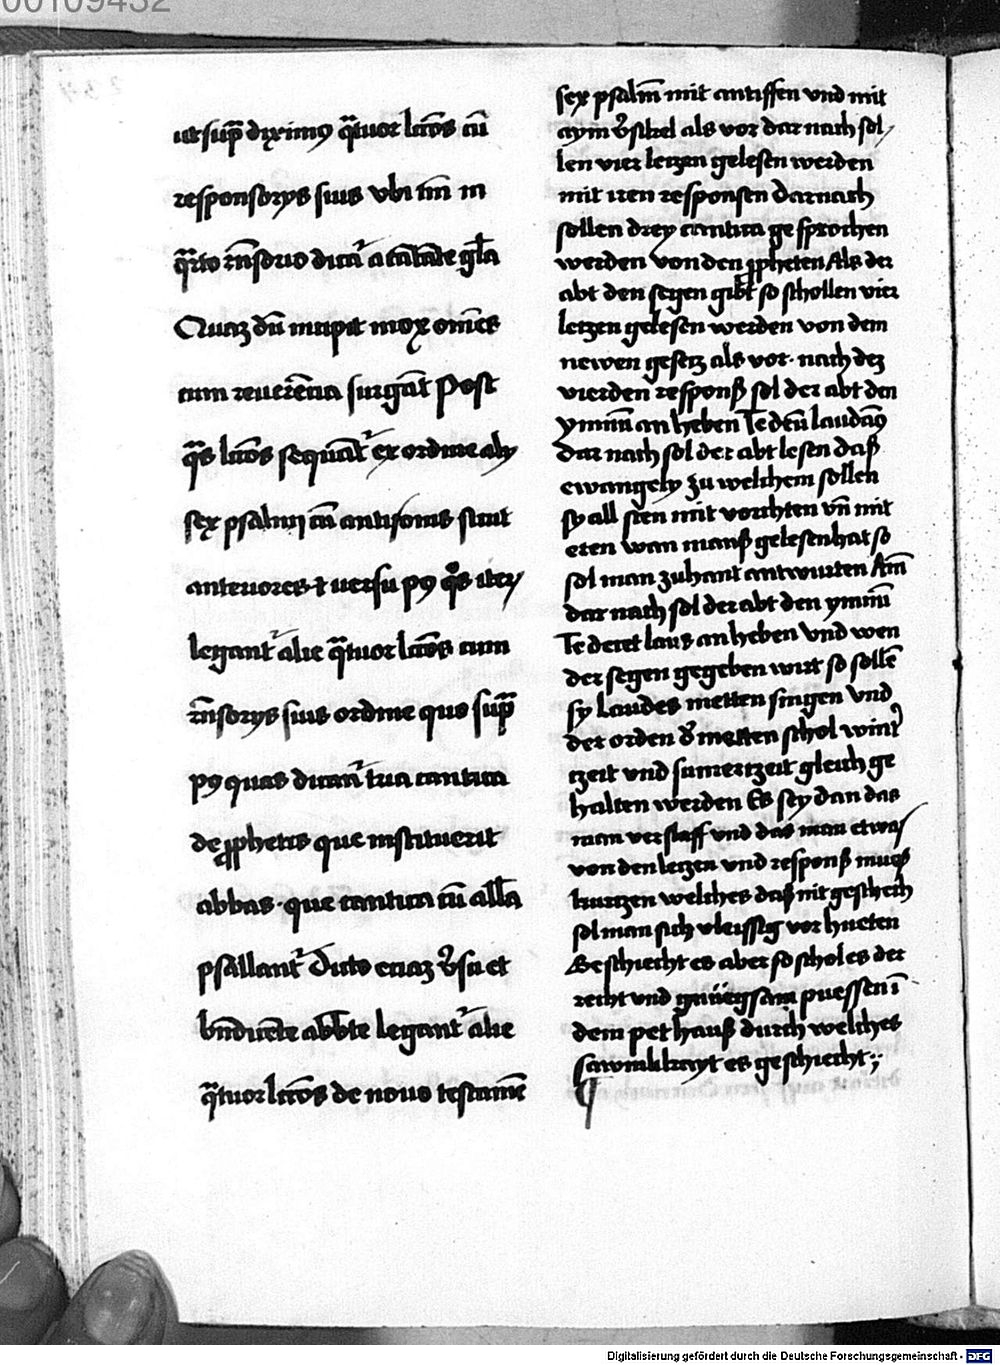 00109432
ut sup̄ diximꝯ q̄tuor lcōes cū
responsorys suis vbi tm̄ in
q̄rto rn̄sorio dicat̉ a cātāte gl̄a
Quaꝫ dū incipit mox om̄es
cum reuerēcia surgāt Post
q̄s lcōes sequāt̉ ex ordine aly
sex psalmi cū antifonis sicut
anteriores et uersu pꝯ q̊s iteꝝ
legant̉ alie q̄tuor lcōes cum
rn̄sorys suis ordine quo sup̄
pꝯ quas dicant̉ tria cantica
de ꝓphetis que instituerit
abbas · que cantica cū all̄a
psallant̉ Dicto eciaꝫ v̉su et
bn̄dicēte abb̄te legant̉ alie
q̄tuor lcōes de nouo testamē
sex psalm̄ mit antiffen vnd mit
aym v̉sikel als vor dar nach sol
len vier letzen gelesen werden
mit iren responsen Darnach
sollen drey cantica ge sprochen
werden von den ꝓpheten Als der
abt den segen gibt so schollen vier
letzen gelesen werden von dem
newen gesetz als vor · nach deʒ
vierden responß sol der abt den
ymnū an heben Te deū laudāꝯ
Dar nach sol der abt lesen daß
ewangely zu welchem sollen
sy all sten mit vorchten vn̄ mit
eren wan manß gelesen hat so
sol man zuhant antwurten Am̄
dar nach sol der abt den ymnū
Te decet laus an heben vnd wen
der segen gegeben wirt so sollē
sy Laudes metten singen vnd
der orden d̉ metten schol wint̉
tzeit vnd sumertzeit gleich ge
halten werden Es sey dan das
man verslaff vnd das man etwaß
von den letzen vnd responß mueß
kurtzen welches daß nit geschech
sol man sich vleissig vor hueten
Geschiecht es aber so schol es der
recht vnd gnüegsam puessen ī
dem pet hauß durch welches
sawmikayt es geschiecht ;
Digitalisierung gefördert durch die Deutsche Forschungsgemeinschaft - DFG